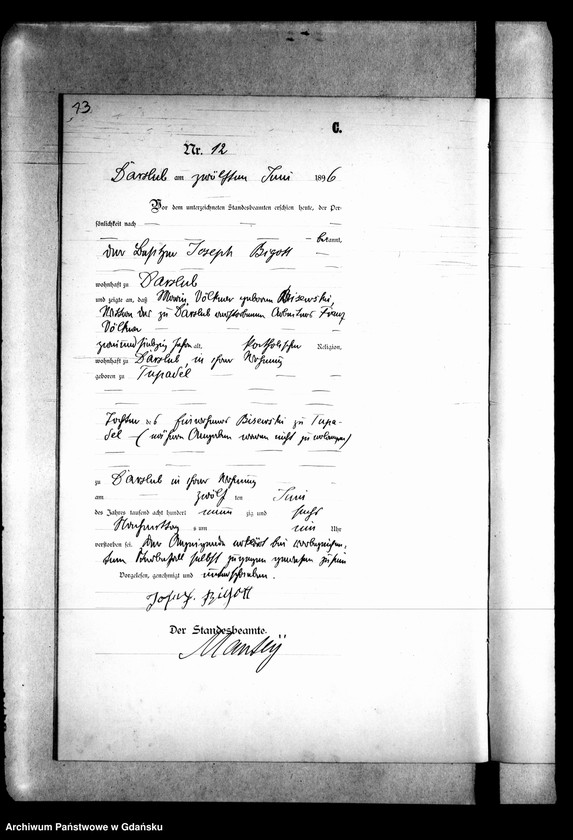 13
C.
Nr. 12
Darslub am zwölften Juni 1896
Vor dem unterzeichneten Standesbeamten erschien heute, der Per-
sönlichkeit nach
bekannt,
der Besitzer Joseph Bigott
wohnhaft zu Darslub
und zeigte an, daß Maria Völkner geborene Bisewski,
Wittwe des zu Darslub verstorbenen Arbeiters Franz
Völkner
zweiundsiebzig Jahre alt, katholischer Religion,
wohnhaft zu Darslub in ihrer Wohnung
geboren zu Tupadel
Tochter des Einwohners Bisewski zu Tupa-
del (nähere Angaben waren nicht zu erlangen)
zu Darslub in ihrer Wohnung
am zwölf ten Juni
des Jahres tausend acht hundert neun zig und sechs
Nachmittag s um ein Uhr
verstorben sei. Der Anzeigende erklärt bei vorbezeichne-
tem Sterbefall selbst zugegen gewesen zu sein
Vorgelesen, genehmigt und unterschrieben.
Josef Bigott
Der Standesbeamte.
Archiwum Państwowe w Gdańsku